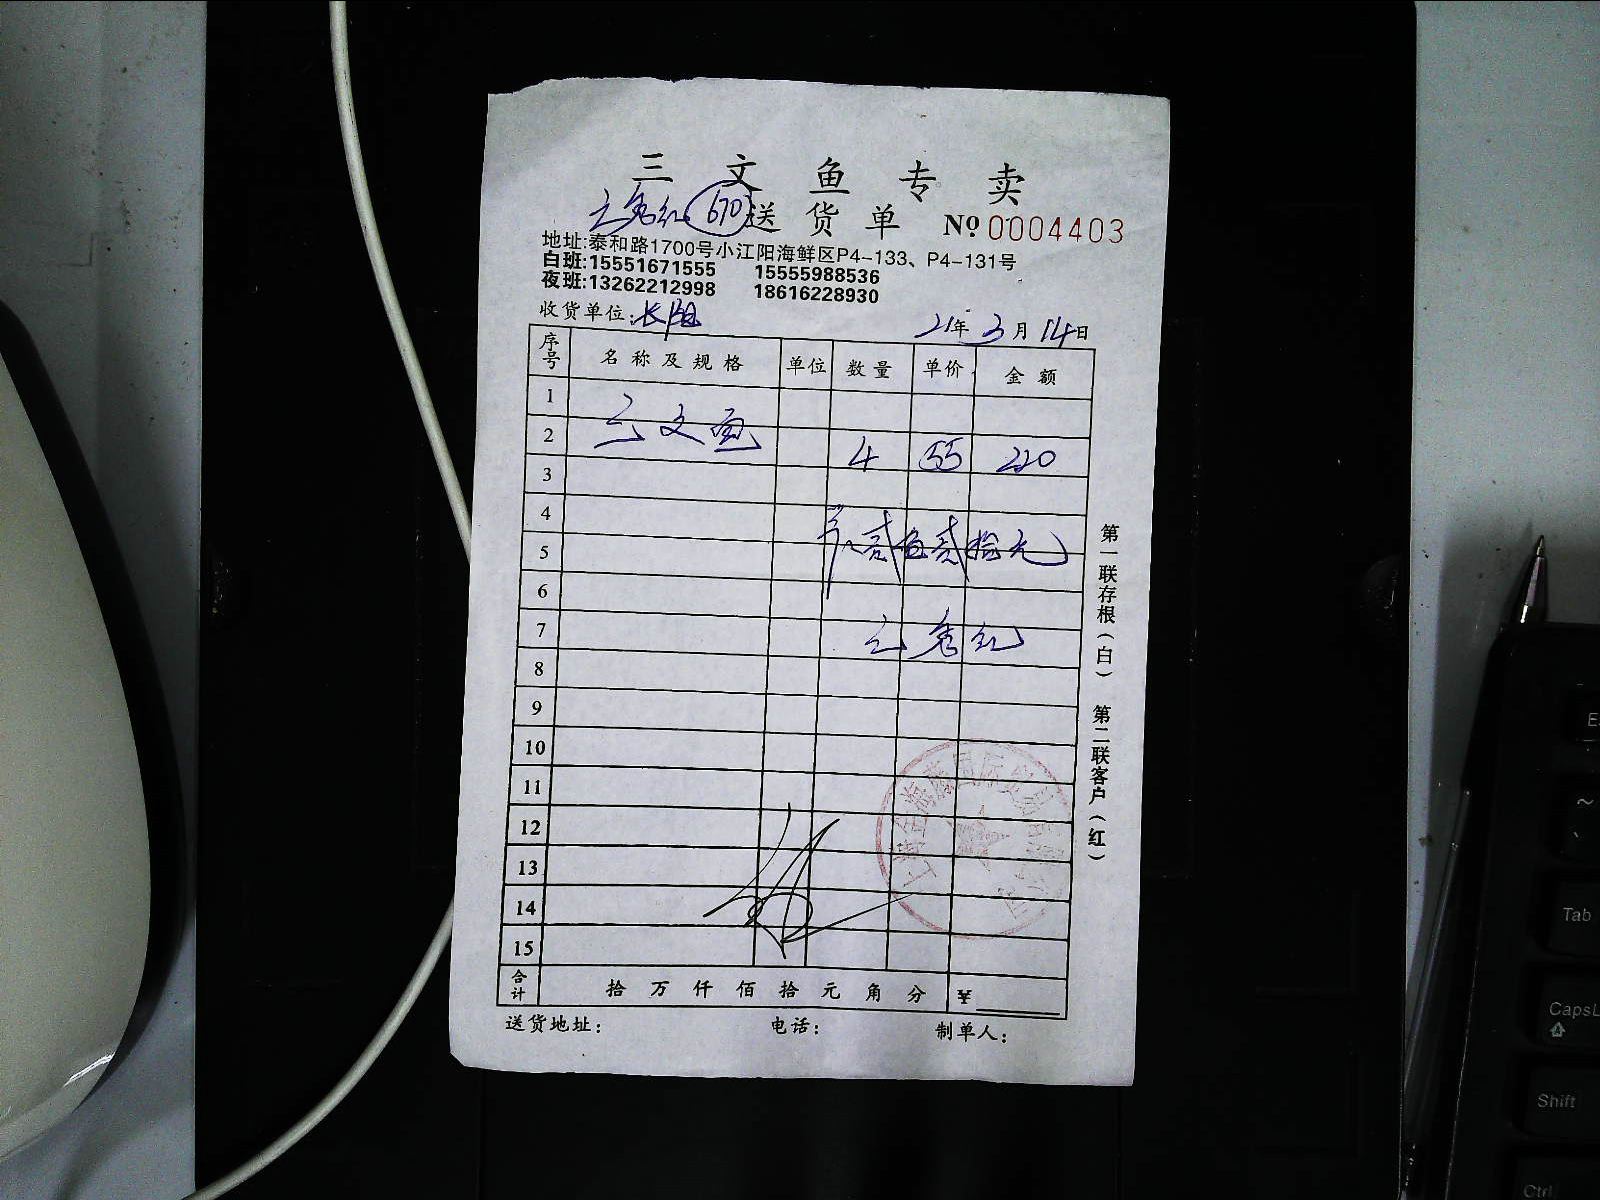 三文鱼专卖
670 送货单 No 0004403
地址:泰和路1700号小江阳海鲜区P4-133、P4-131号
白班:15551671555 15555988536
夜班:13262212998 18616228930
收货单位: 21年 3月 14日
序号 名称及规格 单位 数量 单价 金额
1
2 三文鱼 4 55 220
3
4
5 贰佰贰拾元
6
7
8
9
10
11
12
13
14
15
合计 拾 万 仟 佰 拾 元 角 分 ¥
送货地址: 电话: 制单人:
第一联存根(白) 第二联客户(红)
Tab
CapsL
Shift
Ctrl